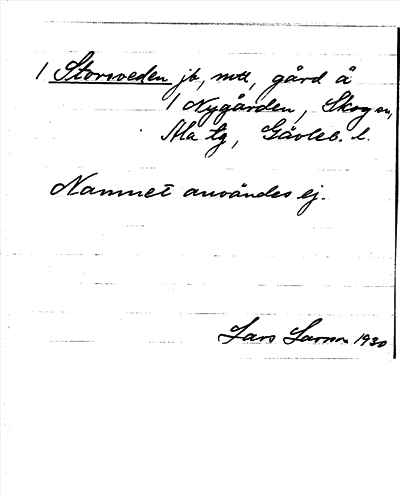 1 Storsveden jb, mtl, gård å
1 Nygården, Skog sn,
Ala tg, Gävleb. l.
Namnet användes ej.
Lars Larsson 1930